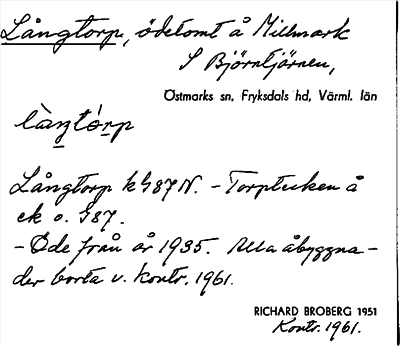 Långtorp, ödetomt å Millmark
S Björntjärnen,
Östmarks sn, Fryksdals hd, Värml. län
là̀ŋtórp
Långtorp k G87 N. - Torptecken å
ek o. G87.
- Öde från år 1935. Alla åbyggna-
der borta v. kontr. 1961.
RICHARD BROBERG 1951
Kontr. 1961.